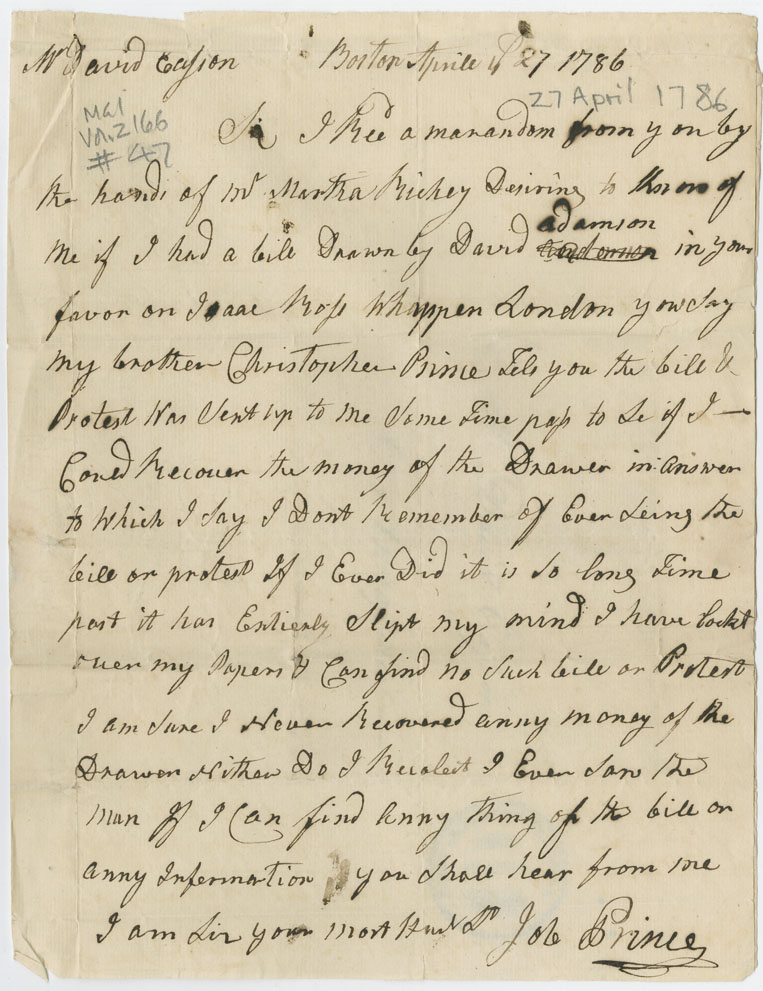 Mr David Casson Boston Aprile 27 1786
27 April 1786
MG1
Vol. 2166
#47
Sir I Recd a marandom from you by
the hands of Mr Martha Richey Desiring to Know of
Me if I had a bill Drawn by David adamson in your
favor on Isaac Ross Whappen London you Say
my brother Christopher Prince Tels you the bill &
Protest Was Sent up to me Some Time pass to Se if I —
Coued Recover the money of the Drawer in answer
to Which I Say I Dont Remember of Ever Seing the
bill or protest If I Ever Did it is So long Time
past it has Entierly Slipt my mind I have lookt
over my Papers & Can find no Such bill or Protest
I am Sure I Never Recovered anny money of the
Drawer Nither Do I Recolect I Ever Saw the
Man If I Can find anny thing of the bill or
anny Information you Shall hear from me
I am Sir your most Hum St Job Prince